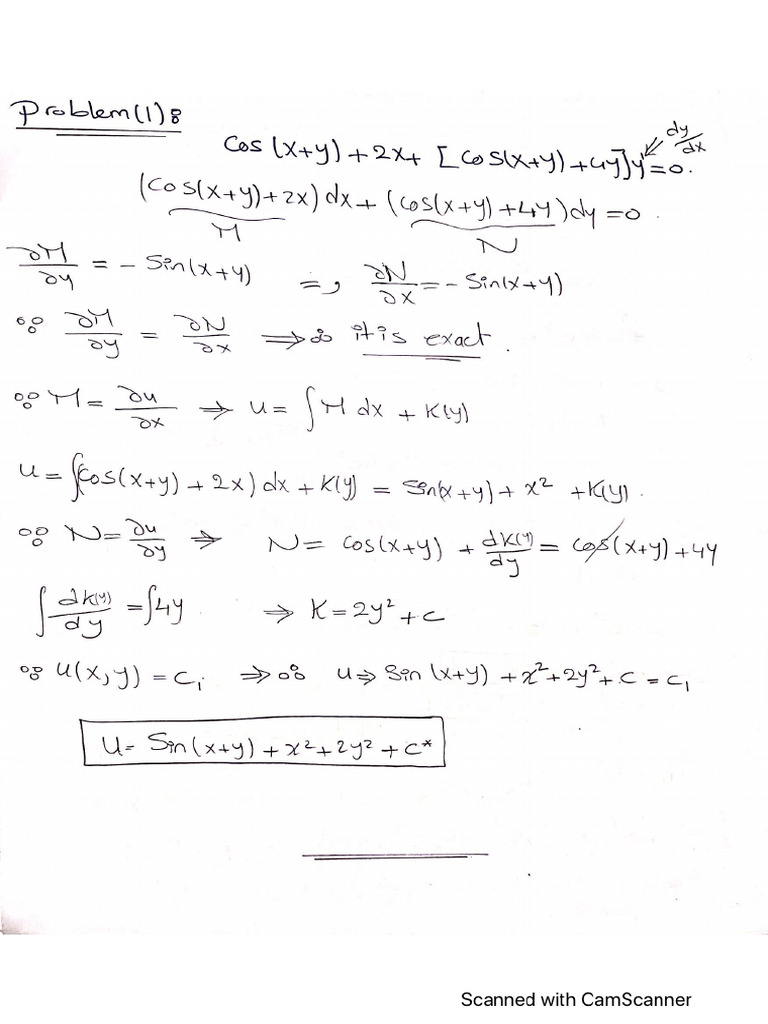 Problem(1):
dy/dx
cos(x+y)+2x+ [cos(x+y)+4y]y'=0.
(cos(x+y)+2x)dx+(cos(x+y)+4y)dy=0.
M N
∂M/∂y = - Sin(x+y) =, ∂N/∂x = - Sin(x+y)
∵ ∂M/∂y = ∂N/∂x ⇒ ∴ it is exact.
∵ M = ∂u/∂x ⇒ u = ∫M dx + K(y)
u = ∫(cos(x+y) + 2x) dx + K(y) = Sin(x+y) + x² + K(y).
∵ N = ∂u/∂y ⇒ N = cos(x+y) + dK(y)/dy = cos(x+y) + 4y
∫ dK(y)/dy = ∫4y ⇒ K = 2y² + c
∵ u(x,y) = c₁ ⇒ ∴ u ⇒ Sin(x+y) + x² + 2y² + c = c₁
U = Sin(x+y) + x² + 2y² + c*
Scanned with CamScanner